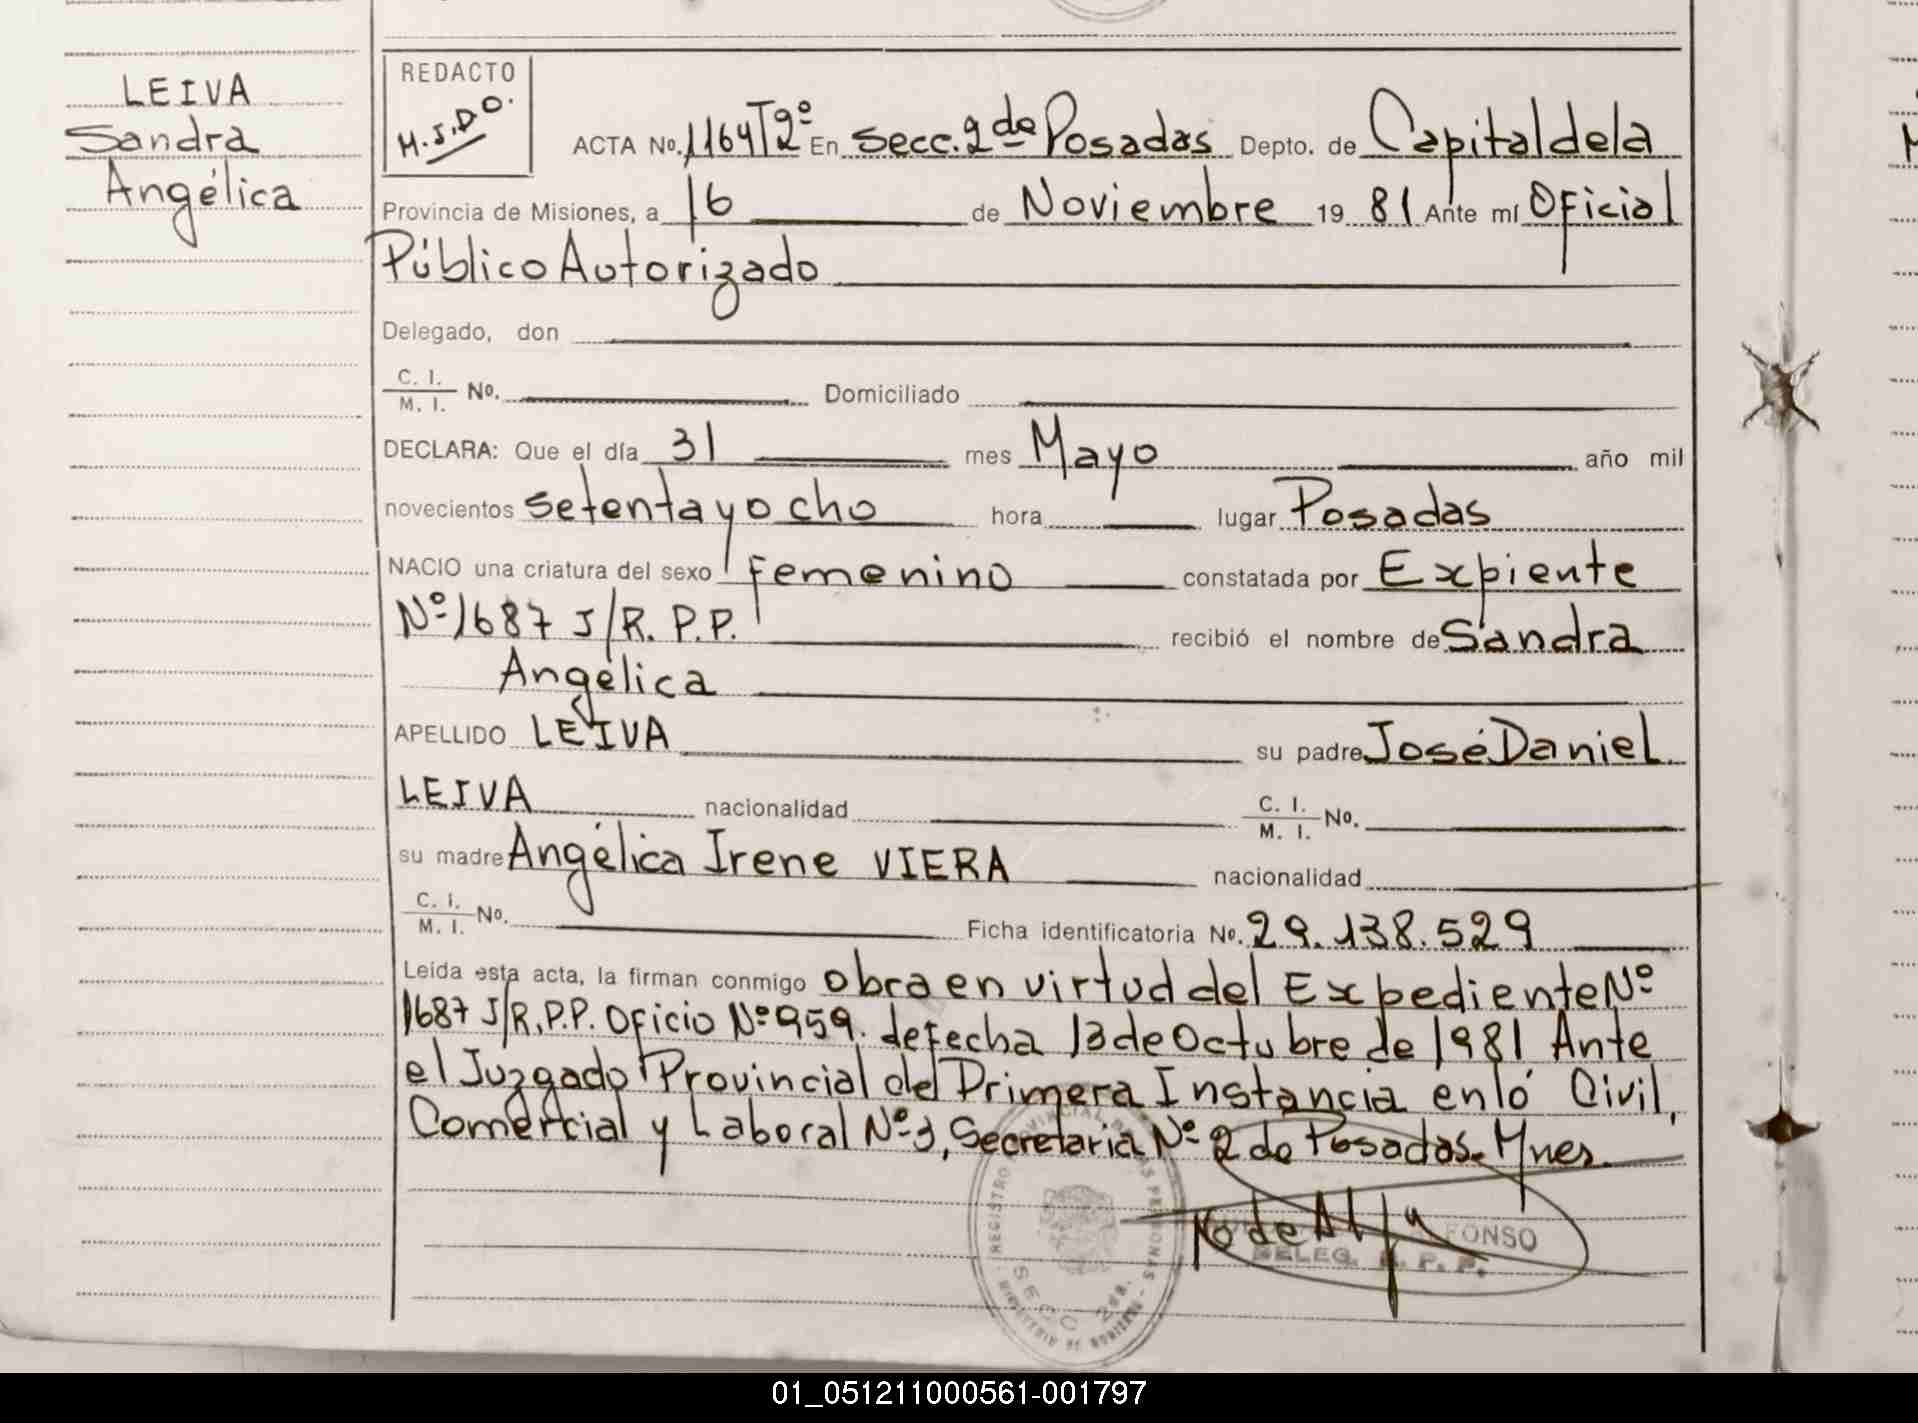 LEIVA
Sandra
Angélica
REDACTO
M.J.D.O.
ACTA No. 1164 T2º En Secc. 2da Posadas Depto. de Capital de la
Provincia de Misiones, a 16 de Noviembre 19 81 Ante mí Oficial
Público Autorizado
Delegado, don
C. I. / M. I. No. Domiciliado
DECLARA: Que el día 31 mes Mayo año mil
novecientos setenta y ocho hora lugar Posadas
NACIO una criatura del sexo femenino constatada por Expiente
Nº 1687 J/R. P.P. recibió el nombre de Sandra
Angélica
APELLIDO LEIVA su padre José Daniel
LEIVA nacionalidad C. I. / M. I. No.
su madre Angélica Irene VIERA nacionalidad
C. I. / M. I. No. Ficha identificatoria No. 29.138.529
Leída esta acta, la firman conmigo obra en virtud del Expediente Nº
1687 J/R.P.P. Oficio Nº 959. de fecha 13 de Octubre de 1981 Ante
el Juzgado Provincial de Primera Instancia en ló Civil,
Comercial y Laboral Nº 3, Secretaria Nº 2 de Posadas. Mnes.
FONSO
DELEG. R. P. P.
REGISTRO PROVINCIAL DE LAS PERSONAS
SECC 2da.
01_051211000561-001797